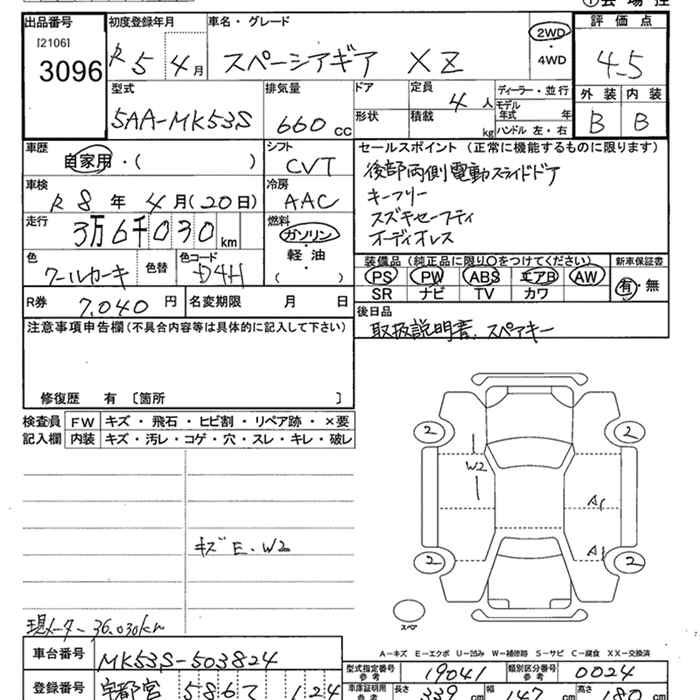 ①会場控
出品番号 [2106] 3096
初度登録年月 R5 4月
車名・グレード スペーシアギア XZ
2WD・4WD
評価点 4.5
外装 内装
B B
型式 5AA-MK53S
排気量 660cc
ドア 形状
定員 4人
積載 kg
ディーラー・並行
モデル年式 年
ハンドル 左・右
車歴 自家用・( )
シフト CVT
セールスポイント(正常に機能するものに限ります)
後部両側電動スライドドア
キーフリー
スズキセーフティ
オーディオレス
車検 R8年4月(20日)
冷房 AAC
走行 3万6千030km
燃料 ガソリン・軽油・( )
色 クールカーキ 色替 色コード D4H
装備品(純正品に限り○をつけてください) 新車保証書
PS PW ABS エアB AW 有・無
SR ナビ TV カワ
R券 7,040円 名変期限 月 日
後日品
取扱説明書、スペアキー
注意事項申告欄(不具合内容等は具体的に記入して下さい)
修復歴 有〔箇所 〕
検査員記入欄
FW キズ・飛石・ヒビ割・リペア跡・×要
内装 キズ・汚レ・コゲ・穴・スレ・キレ・破レ
2 2
W2
A1
A1
2 2
キズE.W2
スペア
現メーター36,030km
A-キズ E-エクボ U-凹み W-補修跡 S-サビ C-腐食 XX-交換済
車台番号 MK53S-503824
型式指定番号参考 19041 類別区分番号参考 0024
登録番号 宇都宮 586 て 124
車庫証明用参考 長さ 339cm 幅 147cm 高さ 180cm